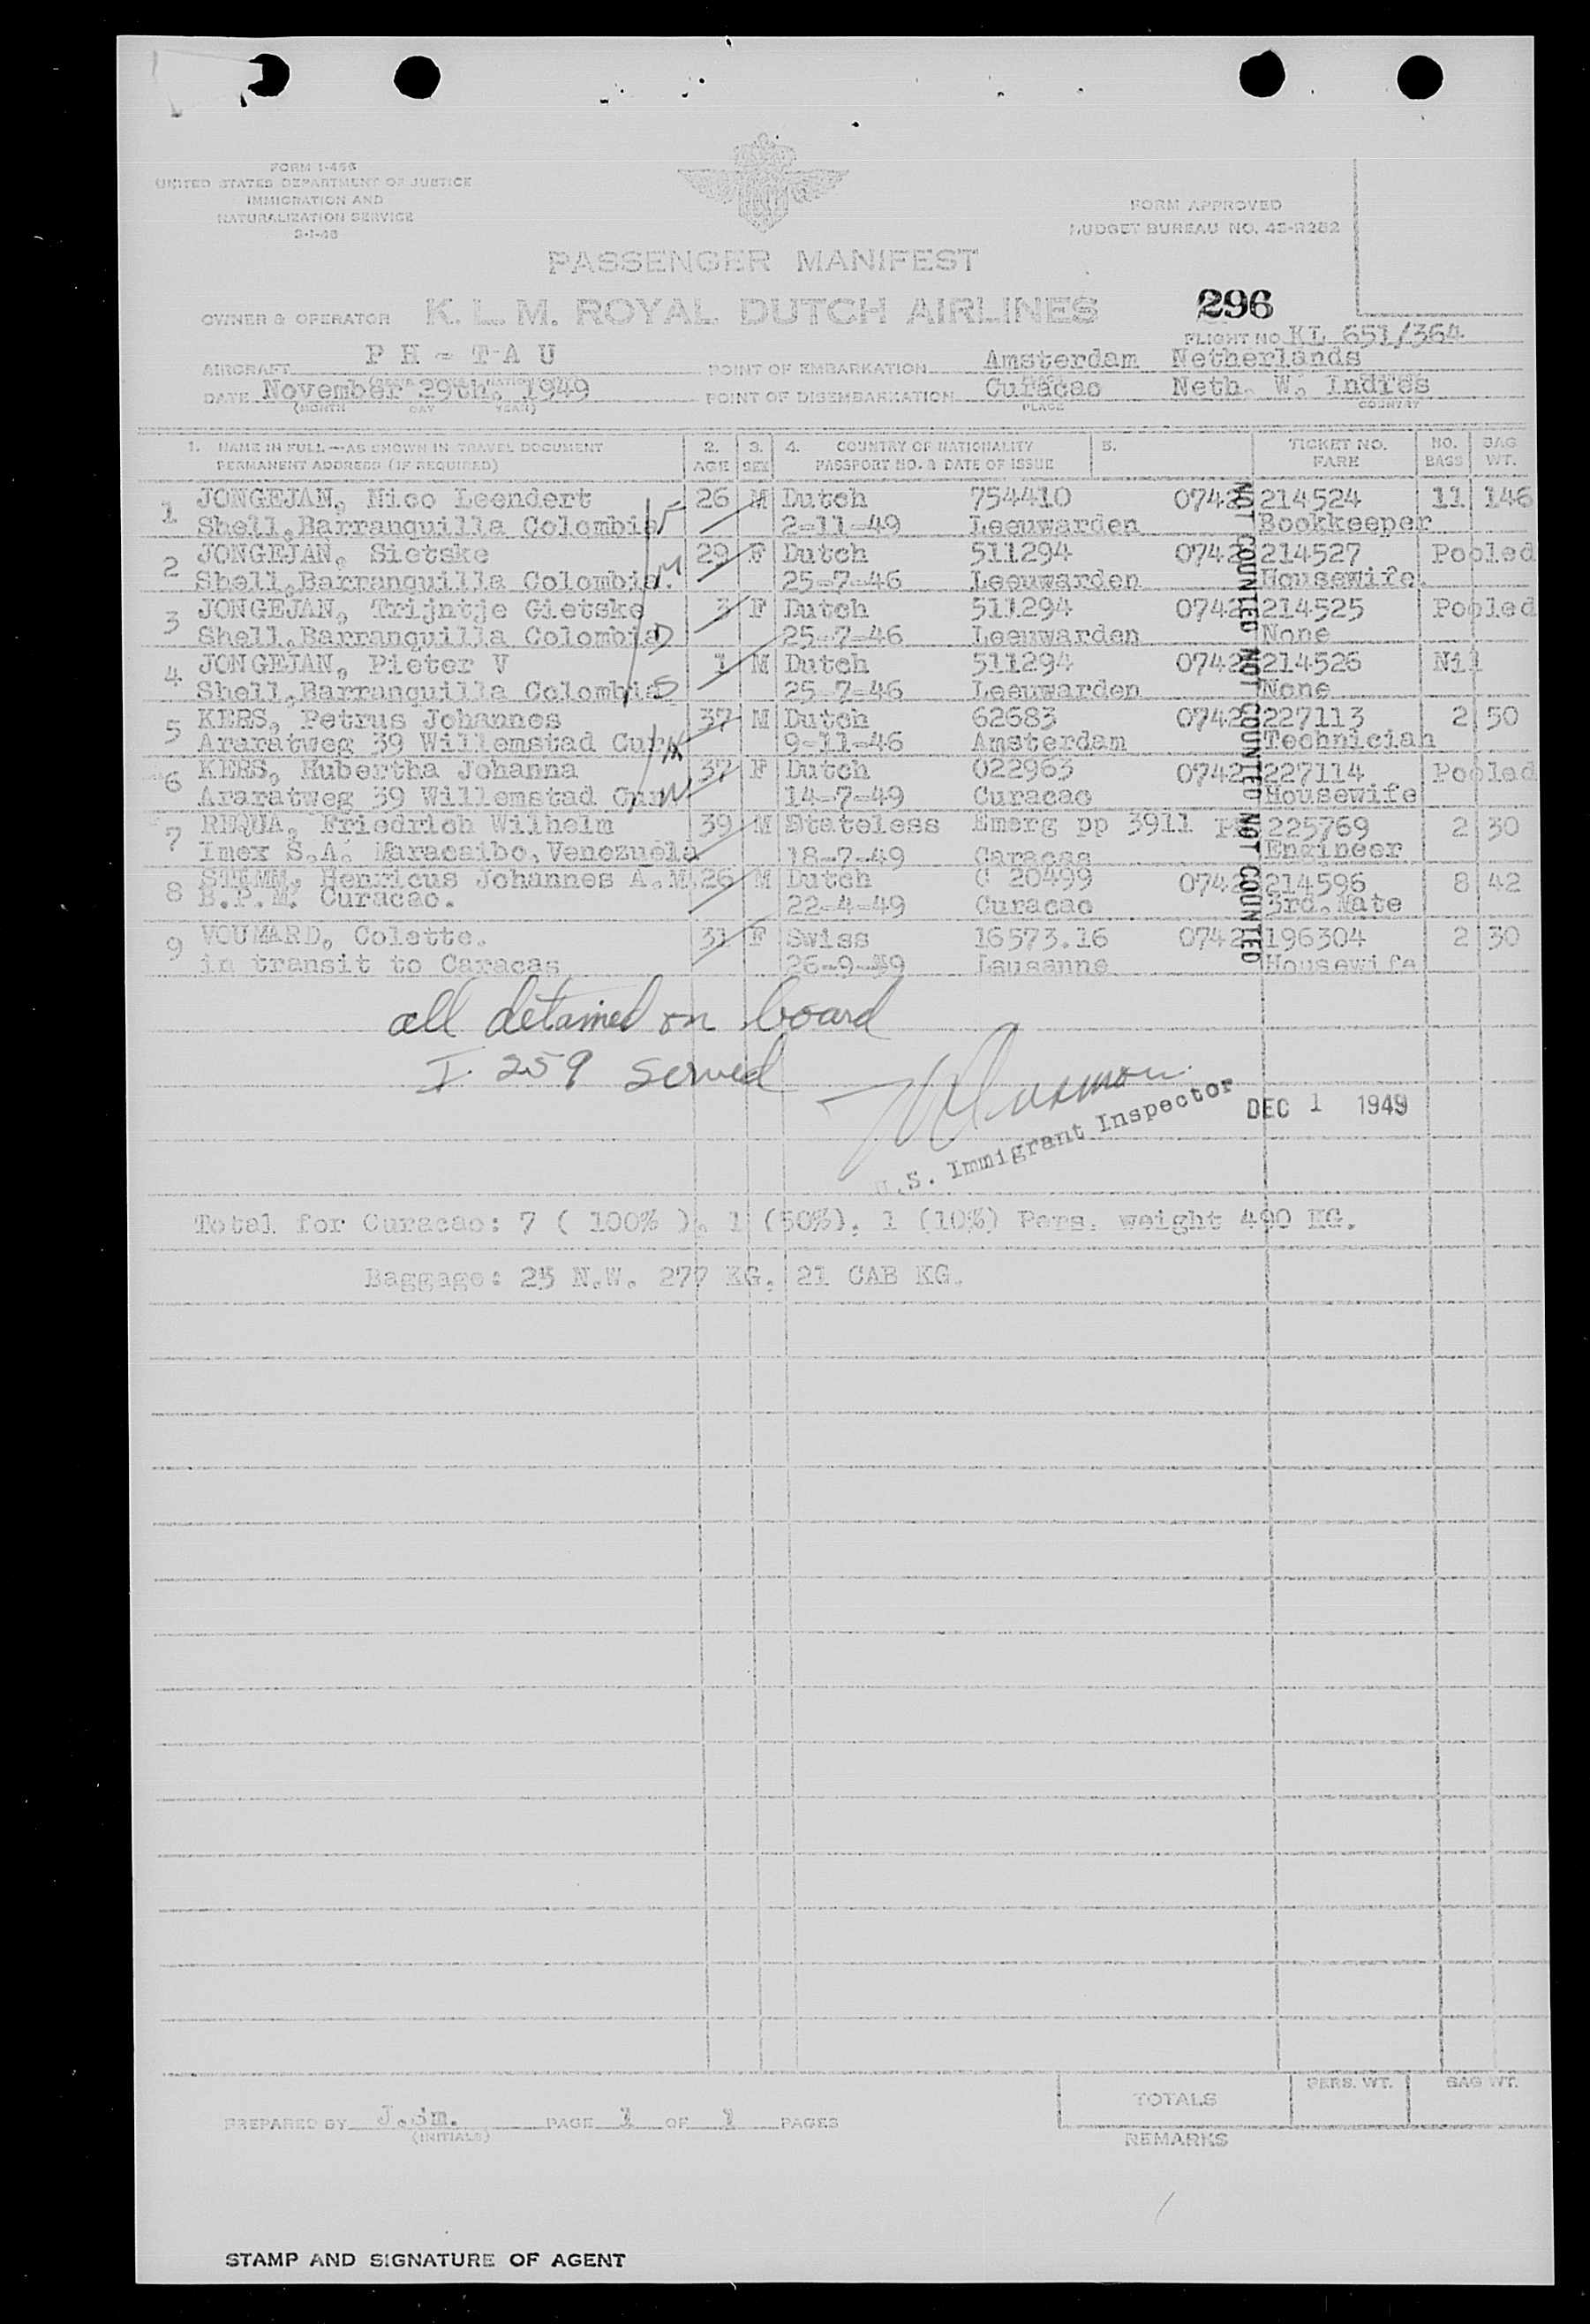 FORM I-466
UNITED STATES DEPARTMENT OF JUSTICE
IMMIGRATION AND
NATURALIZATION SERVICE
FORM APPROVED
BUDGET BUREAU NO. 43-R282
PASSENGER MANIFEST
296
OWNER & OPERATOR K. L. M. ROYAL DUTCH AIRLINES
FLIGHT NO. KL 651/364
AIRCRAFT P H - T A U POINT OF EMBARKATION Amsterdam Netherlands
DATE November 29th, 1949 POINT OF DISEMBARKATION Curacao Neth. W. Indies
(MONTH DAY YEAR) PLACE COUNTRY
1. NAME IN FULL—AS SHOWN IN TRAVEL DOCUMENT 2. 3. 4. COUNTRY OF NATIONALITY 5. TICKET NO. NO. BAG
PERMANENT ADDRESS (IF REQUIRED) AGE SEX PASSPORT NO. & DATE OF ISSUE FARE BAGS WT.
1 JONGEJAN, Nico Leendert 26 M Dutch 754410 0742 214524 11 146
Shell,Barranquilla Colombia 2-11-49 Leeuwarden Bookkeeper
2 JONGEJAN, Sietske 29 F Dutch 511294 0742 214527 Pooled
Shell,Barranquilla Colombia. M 25-7-46 Leeuwarden Housewife.
3 JONGEJAN, Trijntje Gietske 3 F Dutch 511294 0742 214525 Pooled
Shell,Barranquilla Colombia D 25-7-46 Leeuwarden None
4 JONGEJAN, Pieter V 1 M Dutch 511294 0742 214526 Nil
Shell,Barranquilla Colombia S 25-7-46 Leeuwarden None
5 KERS, Petrus Johannes 37 M Dutch 62683 0742 227113 2 50
Araratweg 39 Willemstad Cur. H 9-11-46 Amsterdam Technician
6 KERS, Hubertha Johanna 37 F Dutch 022963 0742 227114 Pooled
Araratweg 39 Willemstad Cur. W 14-7-49 Curacao Housewife
7 REQUA, Friedrich Wilhelm 39 M Stateless Emerg pp 3911 225769 2 30
Imex S.A. Maracaibo,Venezuela 18-7-49 Caracas Engineer
8 Henricus Johannes A.M. 26 M Dutch C 20499 0742 214596 8 42
B.P.M. Curacao. 22-4-49 Curacao 3rd.Mate
9 VOUMARD, Colette. 31 F Swiss 16573.16 0742 196304 2 30
in transit to Caracas 26-9-49 Lausanne Housewife
NOT COUNTED NOT COUNTED NOT COUNTED
all detained on board
I 259 served
U.S. Immigrant Inspector
DEC 1 1949
Total for Curacao: 7 ( 100% ). 1 (50%). 1 (10%) Pers. weight 490 KG.
Baggage: 25 N.W. 277 KG. 21 CAB KG.
TOTALS PERS. WT. BAG WT.
PREPARED BY J.Sm. PAGE 1 OF 1 PAGES
(INITIALS)
REMARKS
STAMP AND SIGNATURE OF AGENT